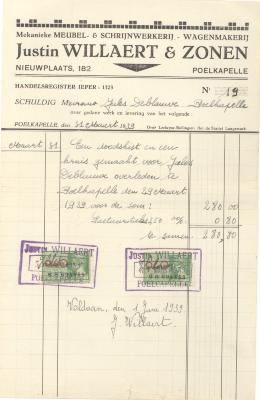 Mekanieke MEUBEL- & SCHRIJNWERKERIJ - WAGENMAKERIJ
Justin WILLAERT & ZONEN
NIEUWPLAATS, 182
POELKAPELLE
HANDELSREGISTER IEPER - 1323
Nº 19
SCHULDIG Mevrouw Jules Deblauwe Poelkapelle
voor gedane werk en levering van het volgende :
POELKAPELLE, den 31 Maart 1939
Maart 31 Een doodskist en een
kruis gemaakt voor Jules
Deblauwe overleden te
Poelkapelle den 29 Maart
1939 voor de som : 280,00
0 80
te samen 280,80
JUSTIN WILLAERT
POELCAPELLE
JUSTIN WILLAERT
POELCAPELLE
Voldaan, den 1 Juni 1939
J. Willaert.